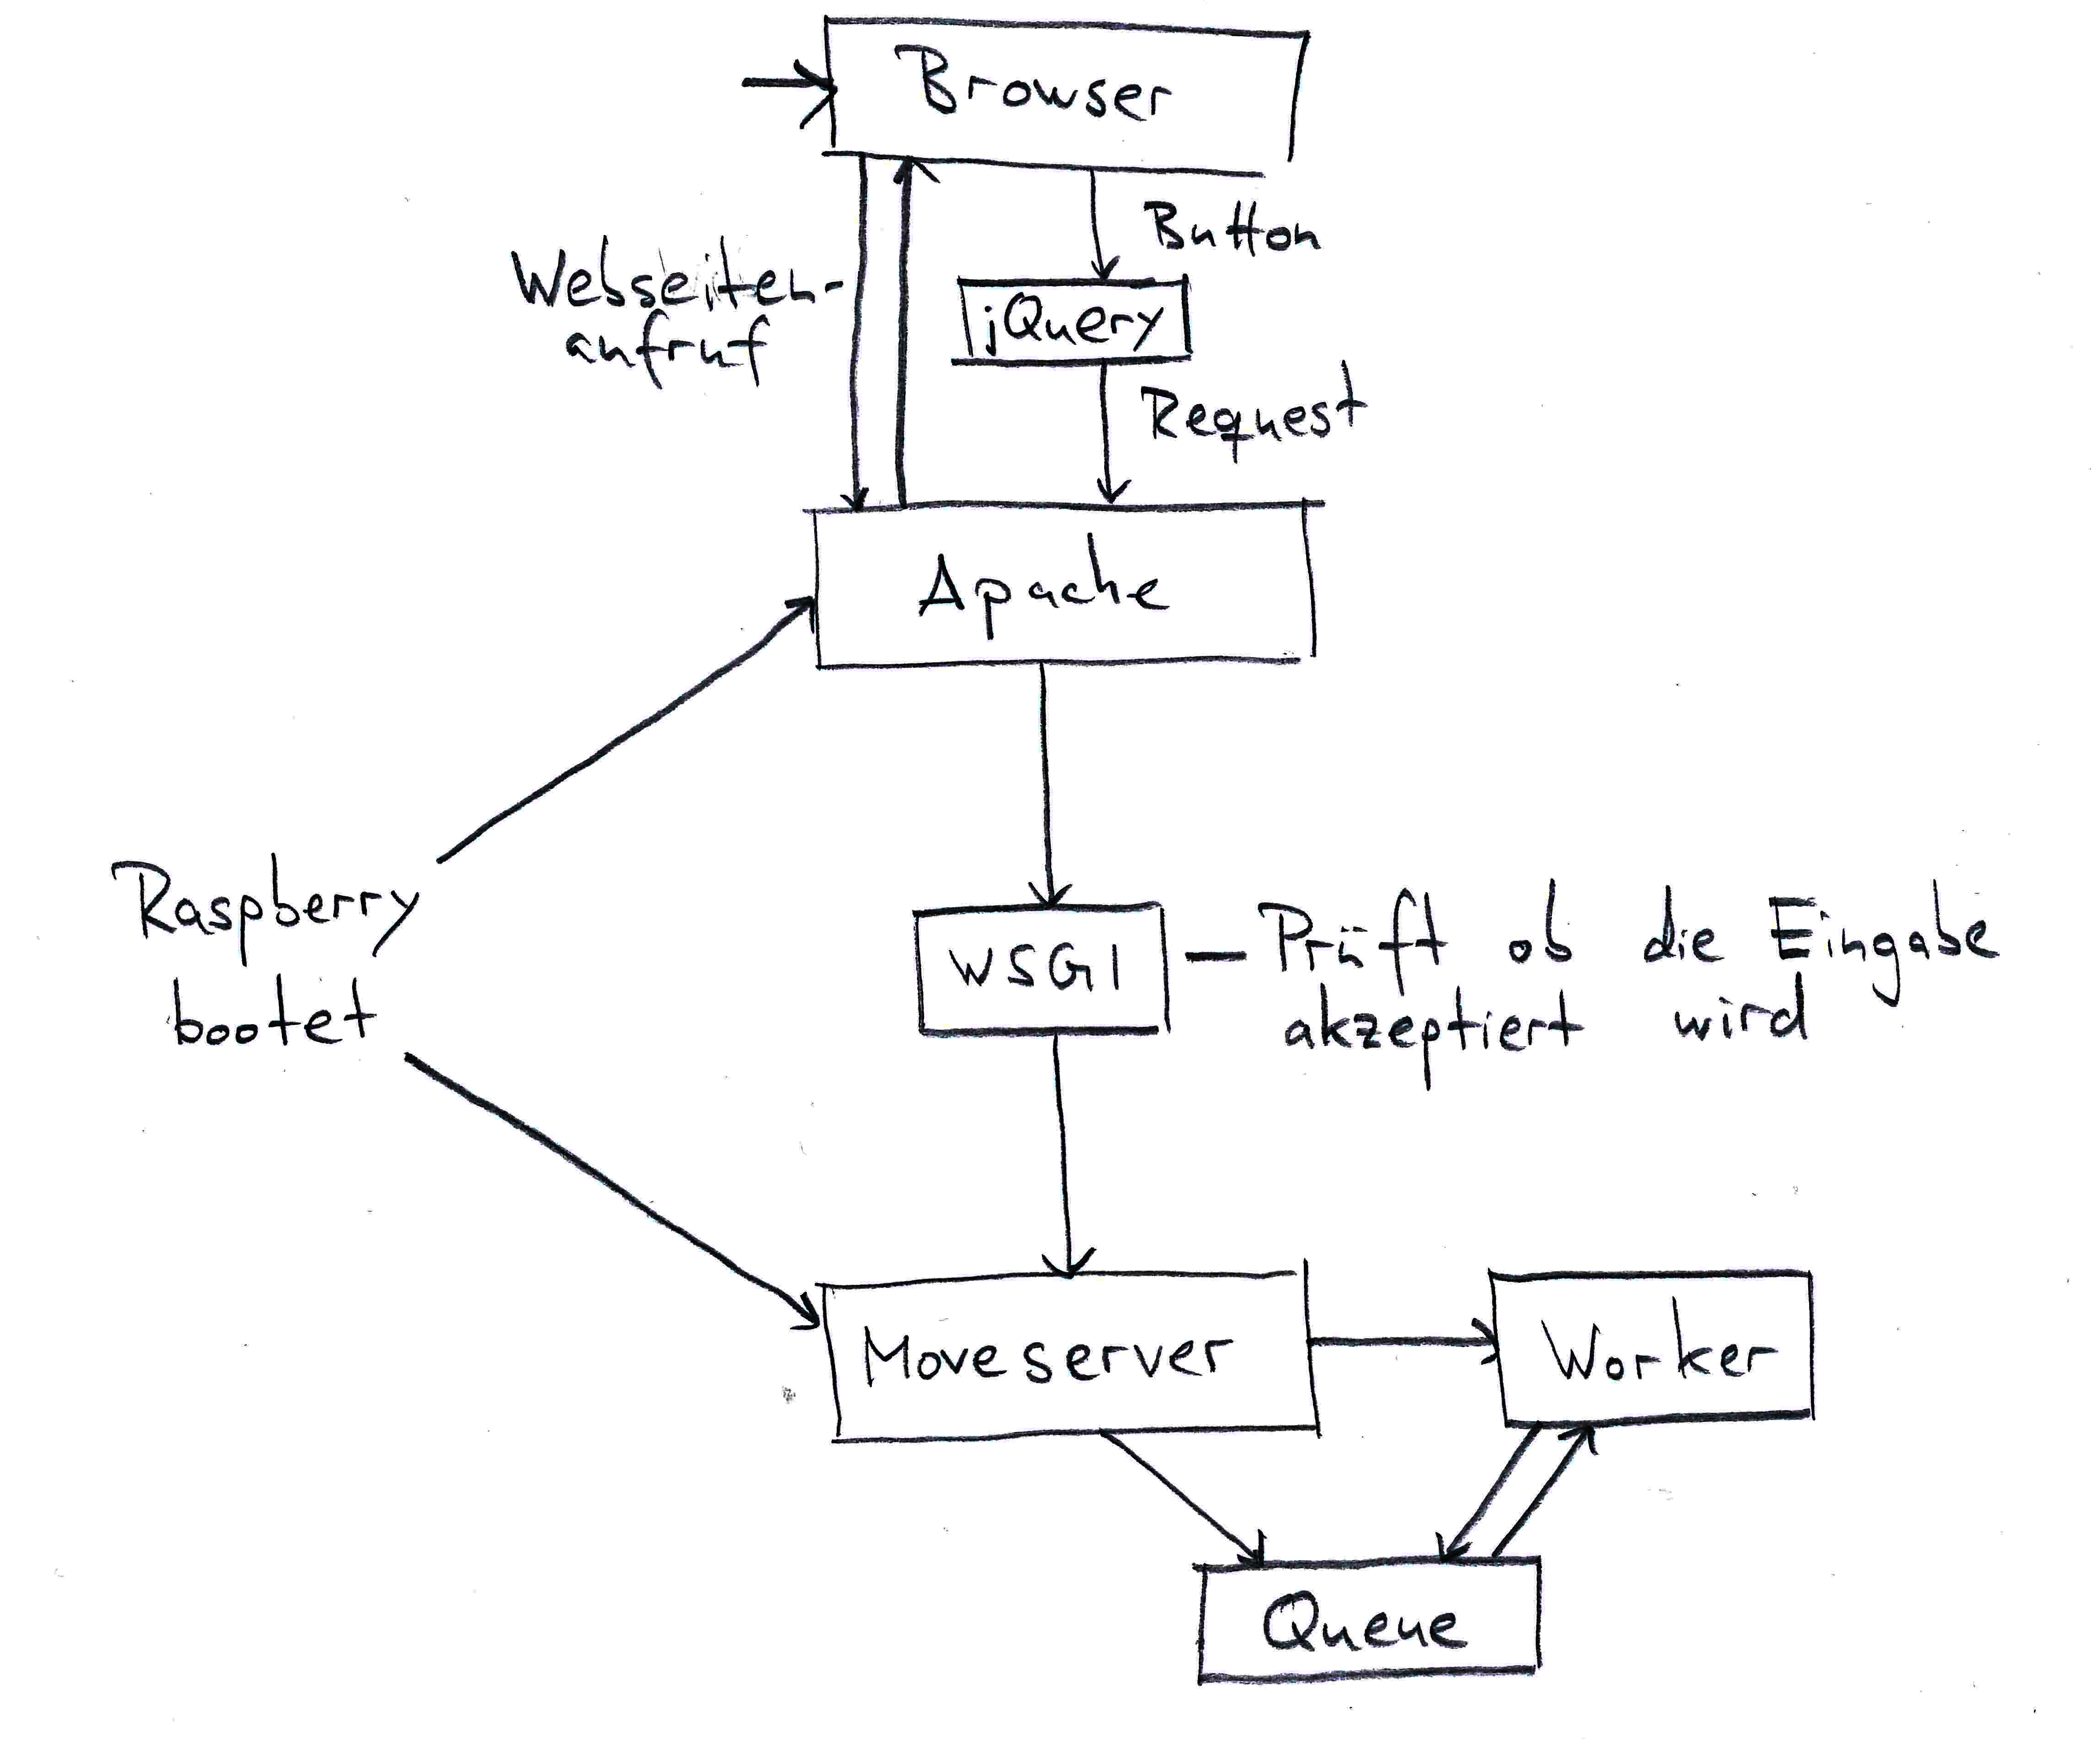 Browser
Button
Webseiten-
anfruf
jQuery
Request
Apache
Raspberry
bootet
WSGI – Prüft ob die Eingabe
akzeptiert wird
Moveserver
Worker
Queue